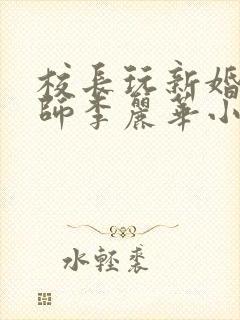 校長玩新婚
師李麗華小
水輕裘